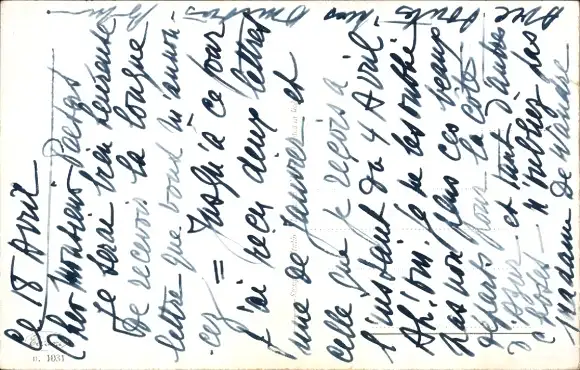 Ce 18 Avril
Cher Monsieur
Je serai bien heureuse
de recevoir la longue
lettre que vous m'annon-
cez = Jusqu'à ce jour
j'ai reçu deux lettres
l'une de Janvier et
celle que je reçois à
l'instant du 4 Avril.
Ah! oui, je ne les oublie
pas non plus ces beaux
départs pour la côte
d'Azur et tant d'autres
choses — N'oubliez pas
Madame de
que
toutes nos
1031